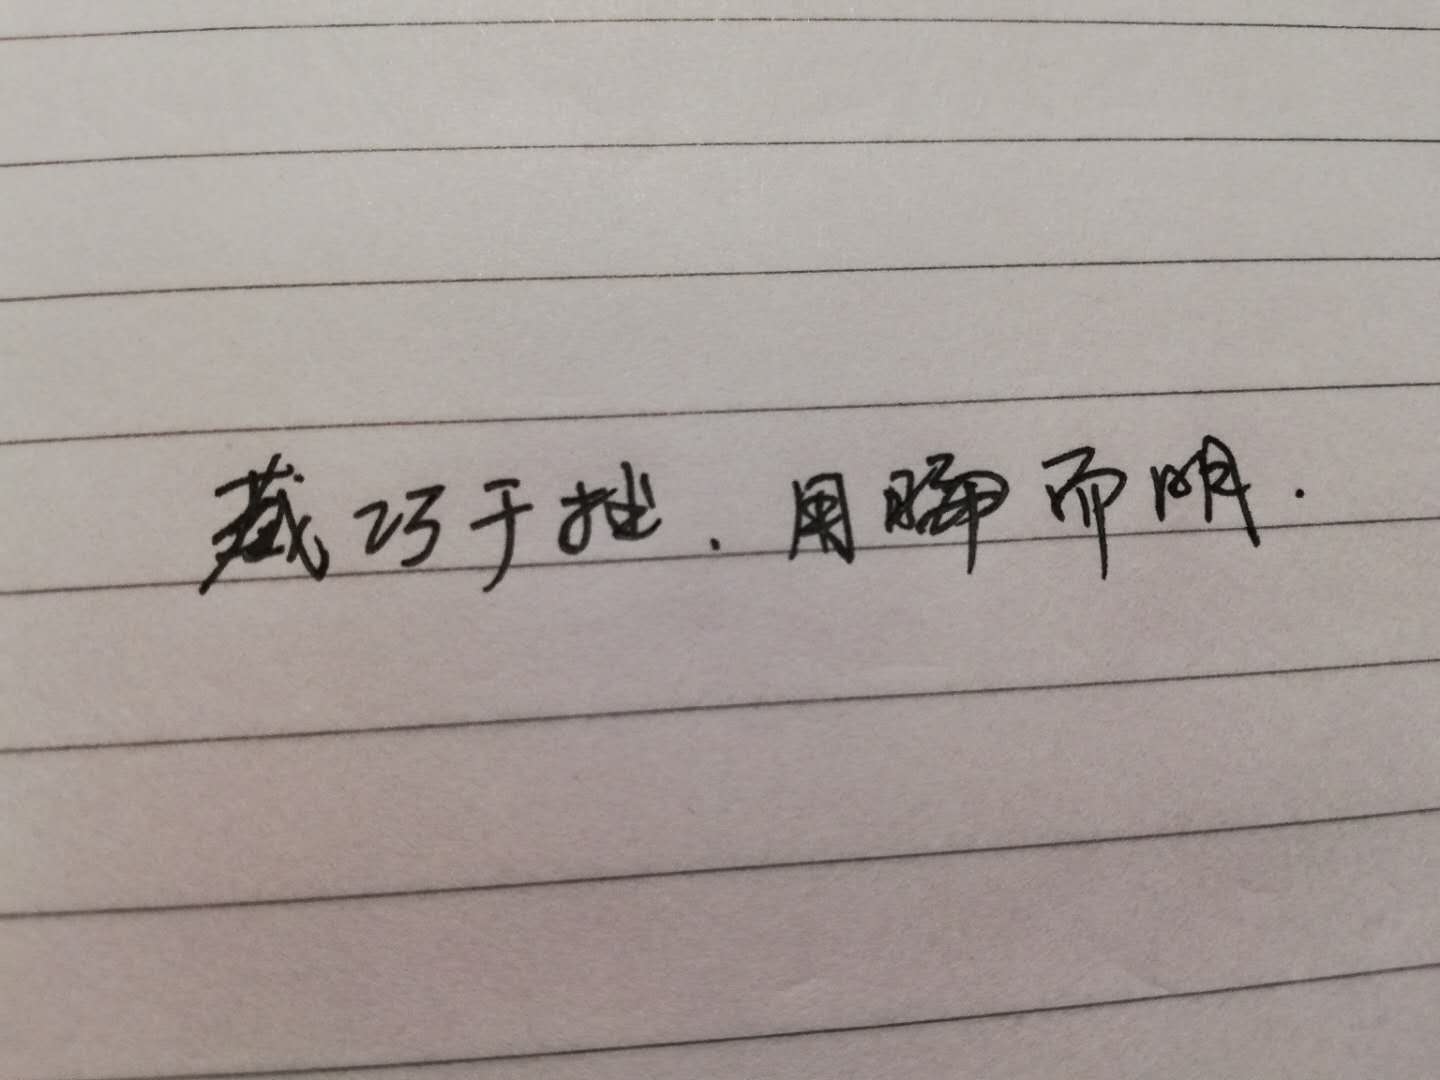 藏巧于拙.用晦而明.